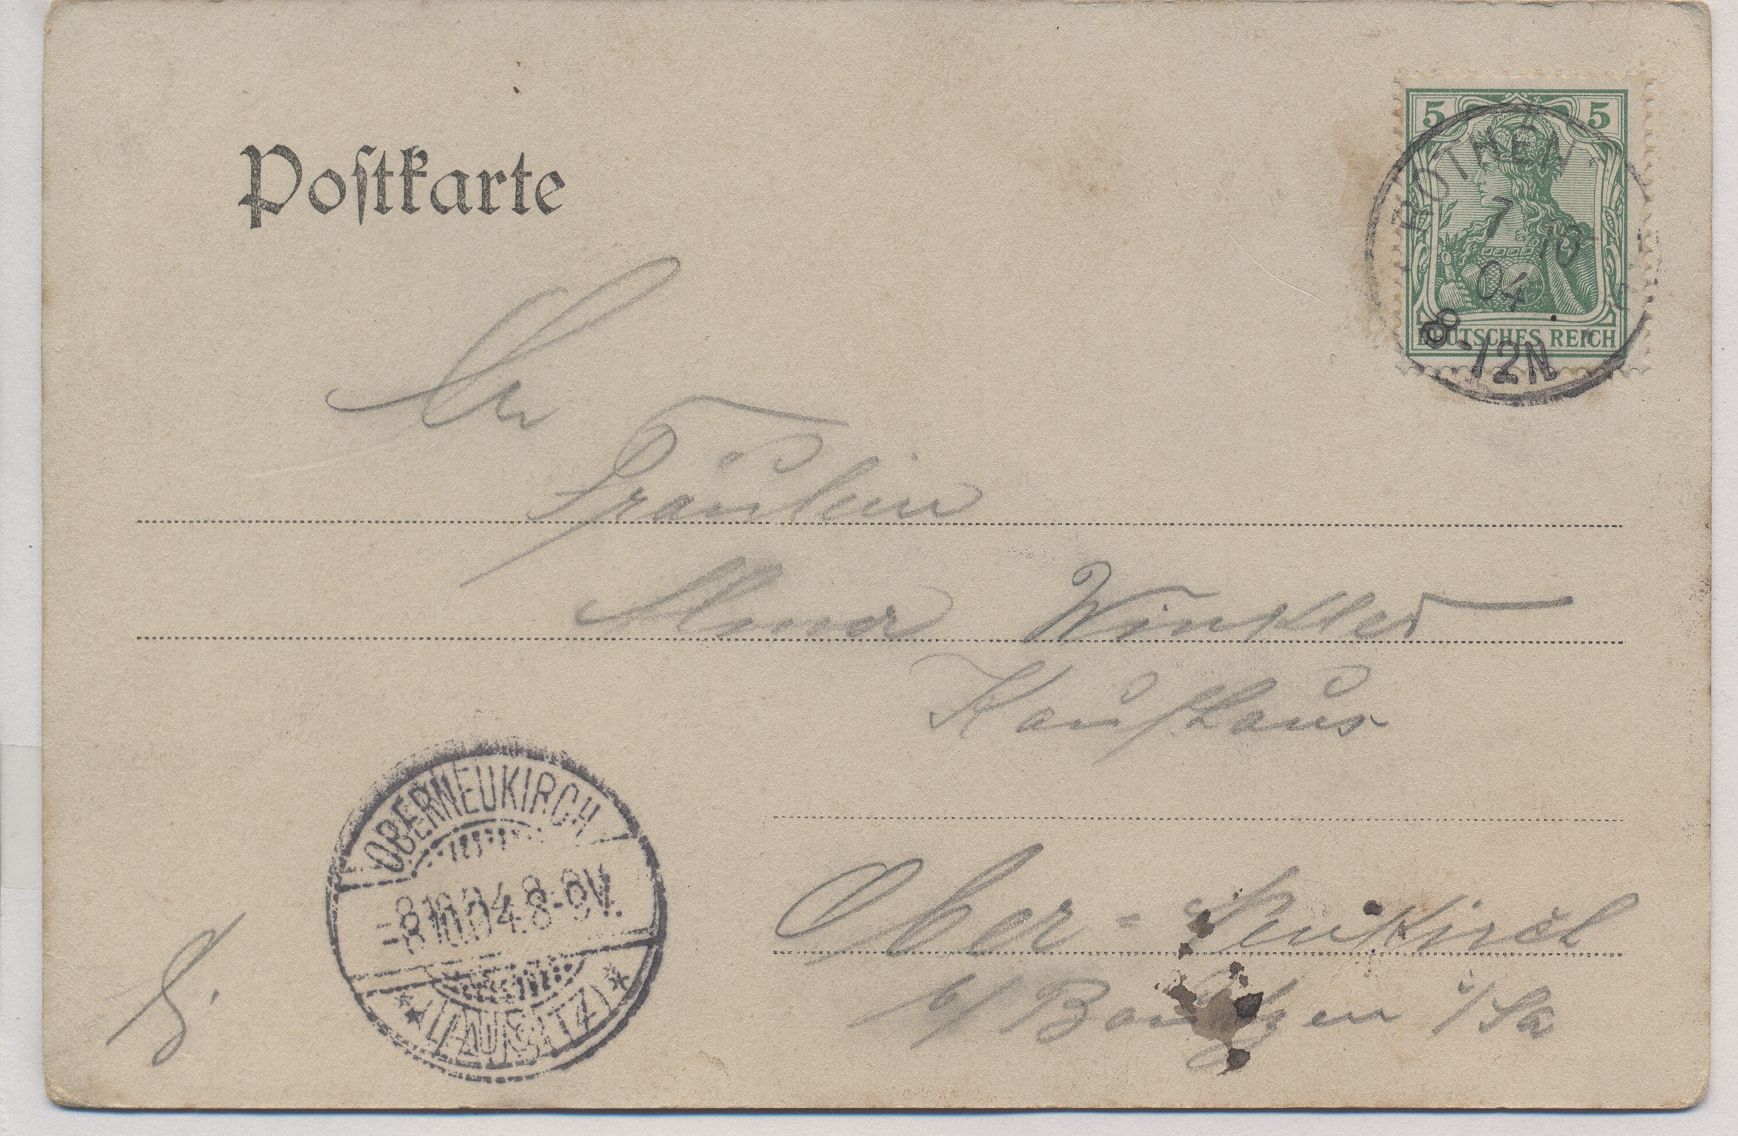 Postkarte
5 5
DEUTSCHES REICH
ROTHEN
7 10
04
8-12N
An
Fräulein
Winkler
Kaufhaus
Ober-Neukirch
b/ Bautzen i/Sa
OBERNEUKIRCH
-8.10.04.8-9V.
*(LAUSITZ)*